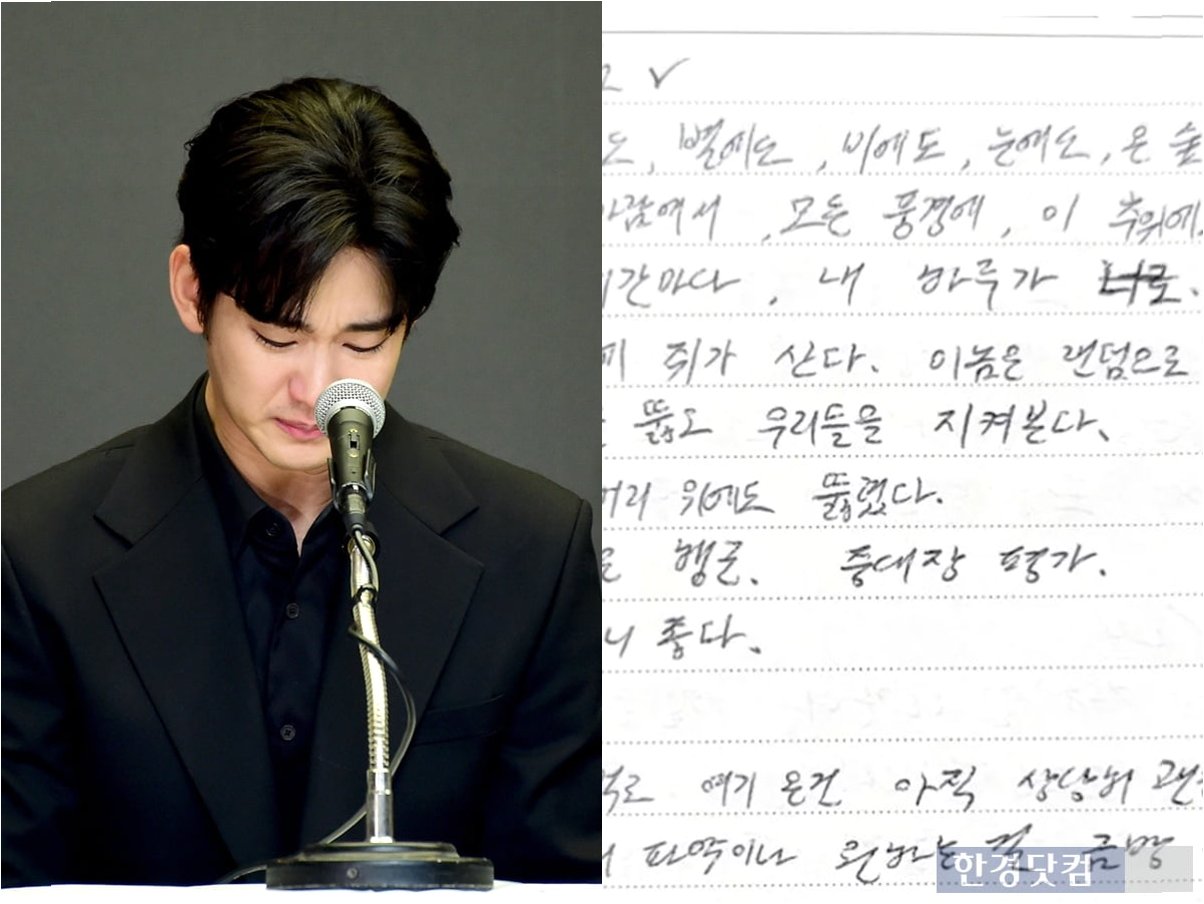 도, 별에도, 비에도, 눈에도, 온 숲
람에서, 모든 풍경에, 이 추위에
간마다, 내 하루가 너로.
쥐가 산다. 이놈은 랜덤으로
뚫고 우리들을 지켜본다.
머리 위에도 뚫렸다.
행군. 중대장 평가.
니 좋다.
여기 온건 아직 상당히 괜
파악이나 원하는 걸 금방
한경닷컴